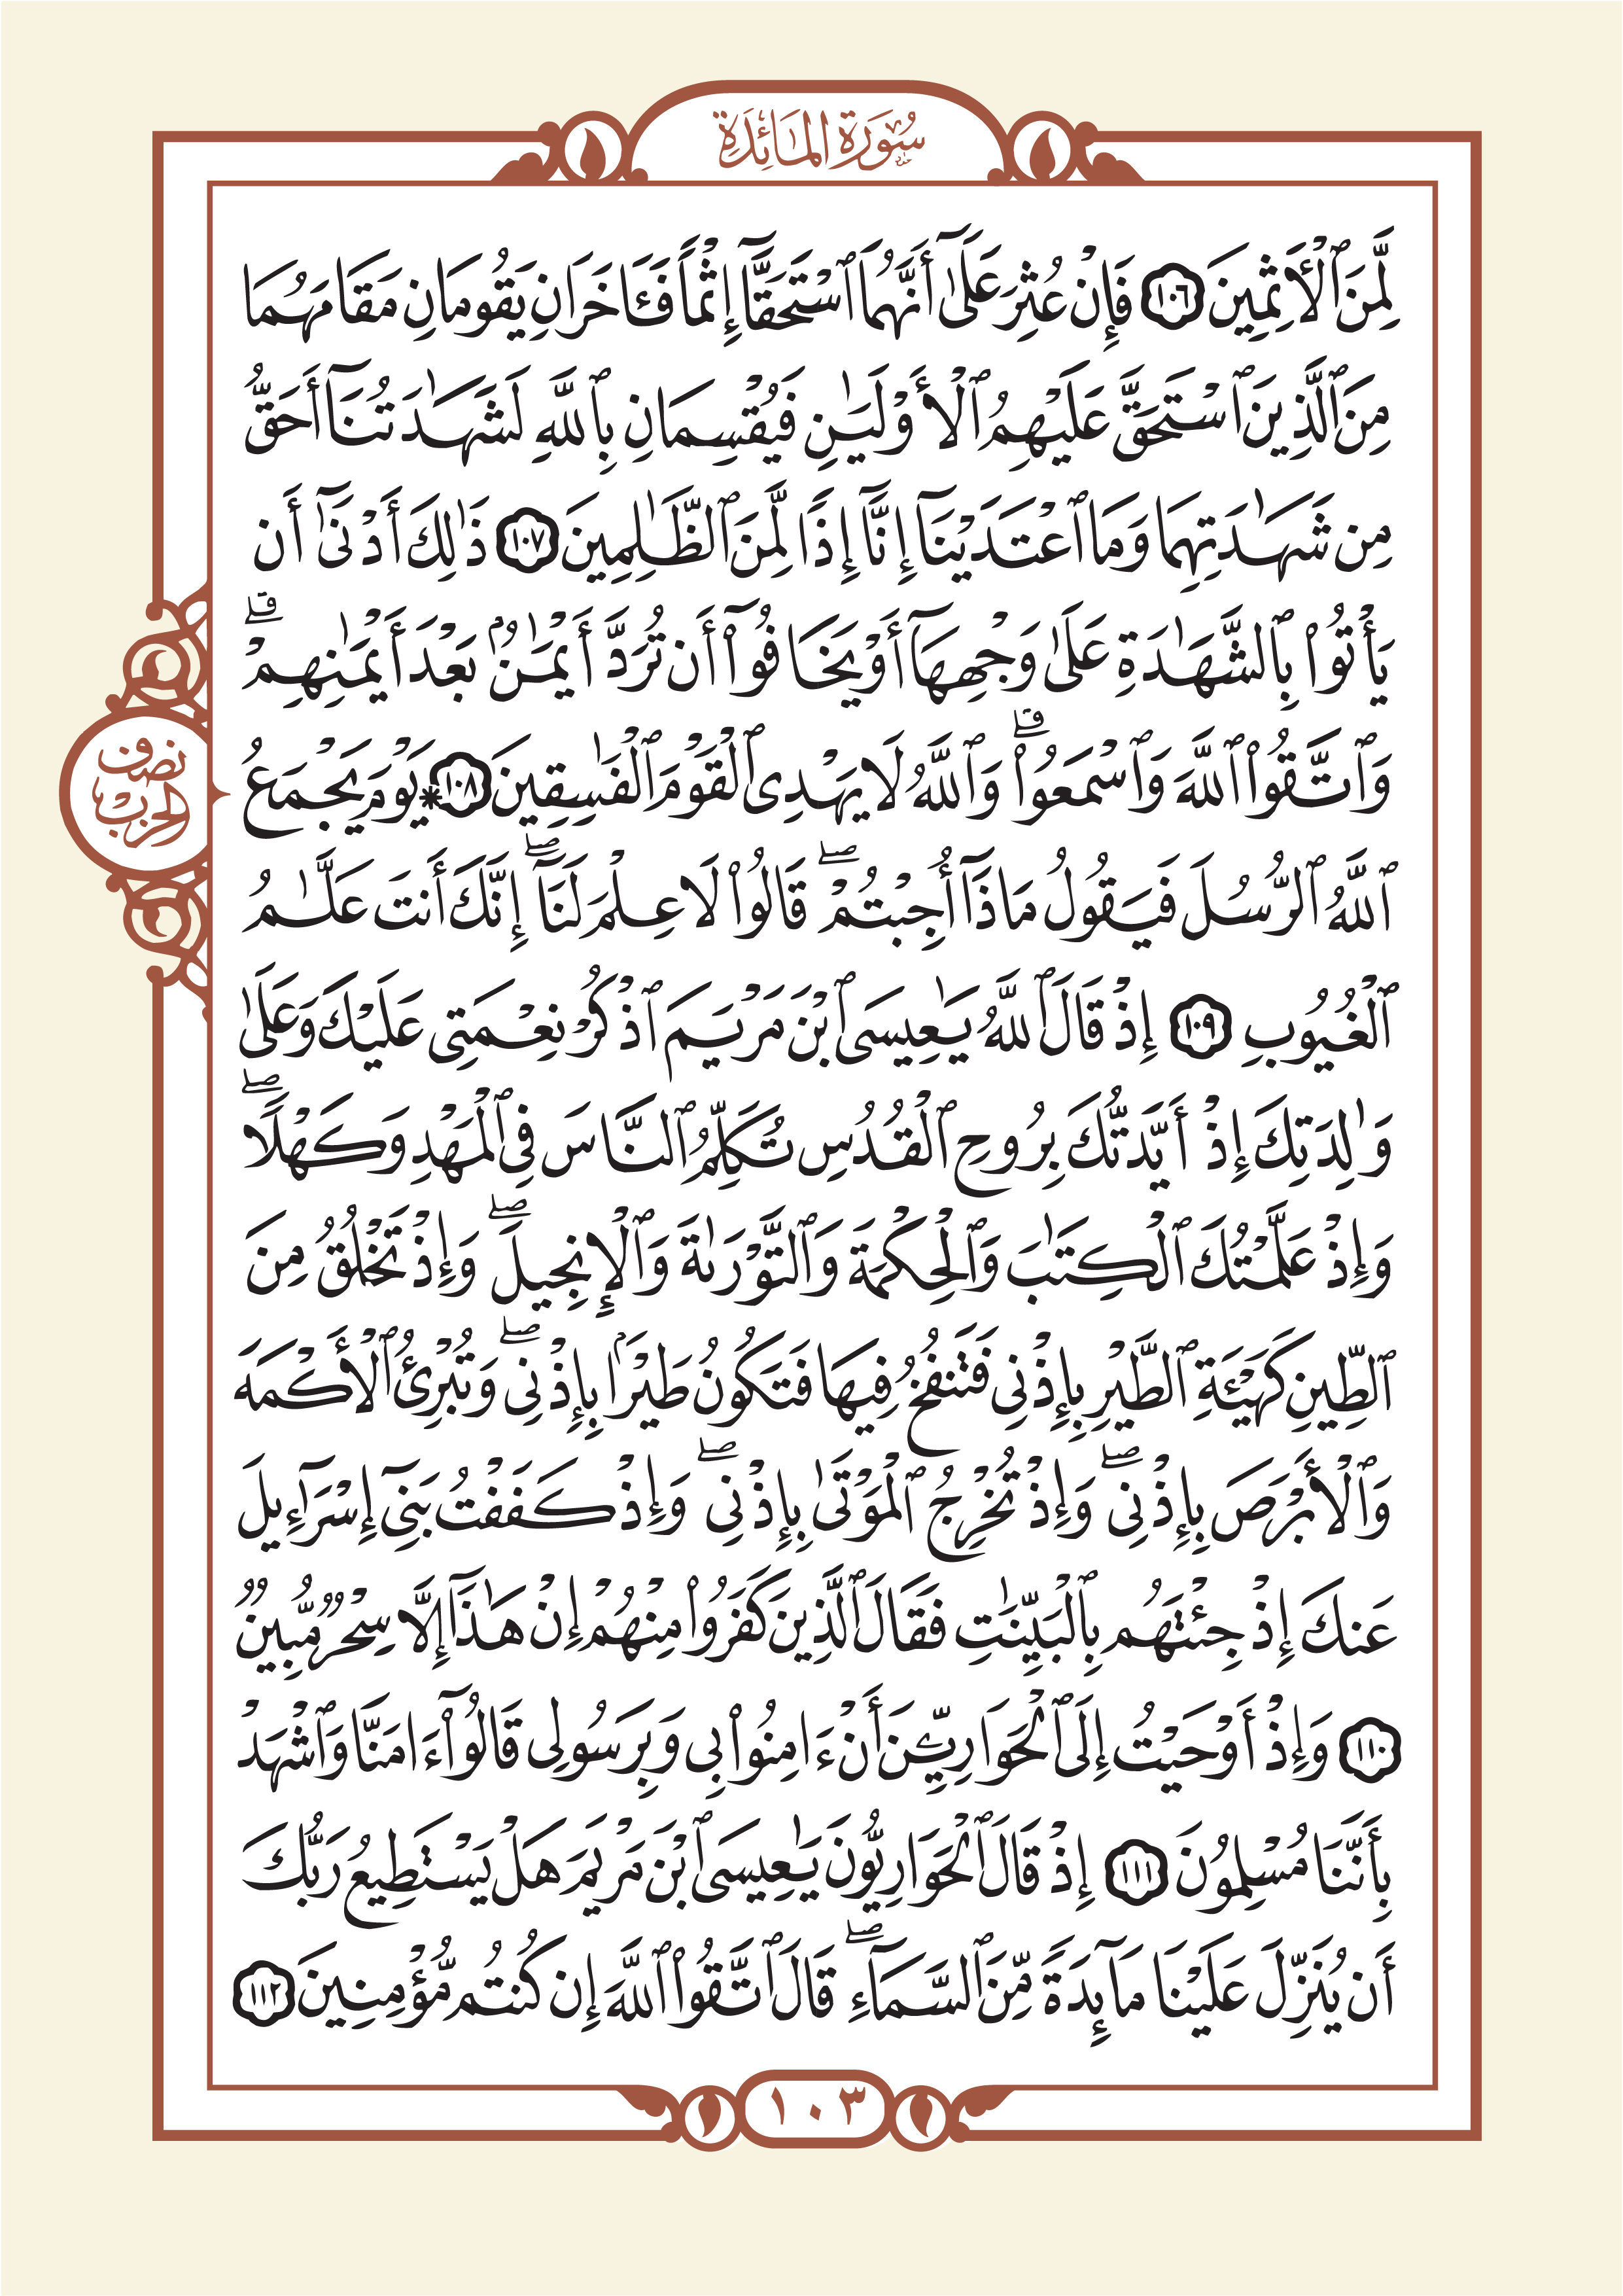 سُورَةُ المَائِدَةِ
لَّمِنَ ٱلْأَثِمِينَ ١٠٦ فَإِنْ عُثِرَ عَلَىٰٓ أَنَّهُمَا ٱسْتَحَقَّآ إِثْمًا فَـَٔاخَرَانِ يَقُومَانِ مَقَامَهُمَا
مِنَ ٱلَّذِينَ ٱسْتَحَقَّ عَلَيْهِمُ ٱلْأَوْلَيَـٰنِ فَيُقْسِمَانِ بِٱللَّهِ لَشَهَـٰدَتُنَآ أَحَقُّ
مِن شَهَـٰدَتِهِمَا وَمَا ٱعْتَدَيْنَآ إِنَّآ إِذًا لَّمِنَ ٱلظَّـٰلِمِينَ ١٠٧ ذَٰلِكَ أَدْنَىٰٓ أَن
يَأْتُوا۟ بِٱلشَّهَـٰدَةِ عَلَىٰ وَجْهِهَآ أَوْ يَخَافُوٓا۟ أَن تُرَدَّ أَيْمَـٰنٌۢ بَعْدَ أَيْمَـٰنِهِمْ ۗ
وَٱتَّقُوا۟ ٱللَّهَ وَٱسْمَعُوا۟ ۗ وَٱللَّهُ لَا يَهْدِى ٱلْقَوْمَ ٱلْفَـٰسِقِينَ ١٠٨ * يَوْمَ يَجْمَعُ
ٱللَّهُ ٱلرُّسُلَ فَيَقُولُ مَاذَآ أُجِبْتُمْ ۖ قَالُوا۟ لَا عِلْمَ لَنَآ ۖ إِنَّكَ أَنتَ عَلَّـٰمُ
ٱلْغُيُوبِ ١٠٩ إِذْ قَالَ ٱللَّهُ يَـٰعِيسَى ٱبْنَ مَرْيَمَ ٱذْكُرْ نِعْمَتِى عَلَيْكَ وَعَلَىٰ
وَٰلِدَتِكَ إِذْ أَيَّدتُّكَ بِرُوحِ ٱلْقُدُسِ تُكَلِّمُ ٱلنَّاسَ فِى ٱلْمَهْدِ وَكَهْلًا ۖ
وَإِذْ عَلَّمْتُكَ ٱلْكِتَـٰبَ وَٱلْحِكْمَةَ وَٱلتَّوْرَىٰةَ وَٱلْإِنجِيلَ ۖ وَإِذْ تَخْلُقُ مِنَ
ٱلطِّينِ كَهَيْـَٔةِ ٱلطَّيْرِ بِإِذْنِى فَتَنفُخُ فِيهَا فَتَكُونُ طَيْرًۢا بِإِذْنِى ۖ وَتُبْرِئُ ٱلْأَكْمَهَ
وَٱلْأَبْرَصَ بِإِذْنِى ۖ وَإِذْ تُخْرِجُ ٱلْمَوْتَىٰ بِإِذْنِى ۖ وَإِذْ كَفَفْتُ بَنِىٓ إِسْرَٰٓءِيلَ
عَنكَ إِذْ جِئْتَهُم بِٱلْبَيِّنَـٰتِ فَقَالَ ٱلَّذِينَ كَفَرُوا۟ مِنْهُمْ إِنْ هَـٰذَآ إِلَّا سِحْرٌ مُّبِينٌ
١١٠ وَإِذْ أَوْحَيْتُ إِلَى ٱلْحَوَارِيِّـۧنَ أَنْ ءَامِنُوا۟ بِى وَبِرَسُولِى قَالُوٓا۟ ءَامَنَّا وَٱشْهَدْ
بِأَنَّنَا مُسْلِمُونَ ١١١ إِذْ قَالَ ٱلْحَوَارِيُّونَ يَـٰعِيسَى ٱبْنَ مَرْيَمَ هَلْ يَسْتَطِيعُ رَبُّكَ
أَن يُنَزِّلَ عَلَيْنَا مَآئِدَةً مِّنَ ٱلسَّمَآءِ ۖ قَالَ ٱتَّقُوا۟ ٱللَّهَ إِن كُنتُم مُّؤْمِنِينَ ١١٢
نصف
الحزب
١٠٣